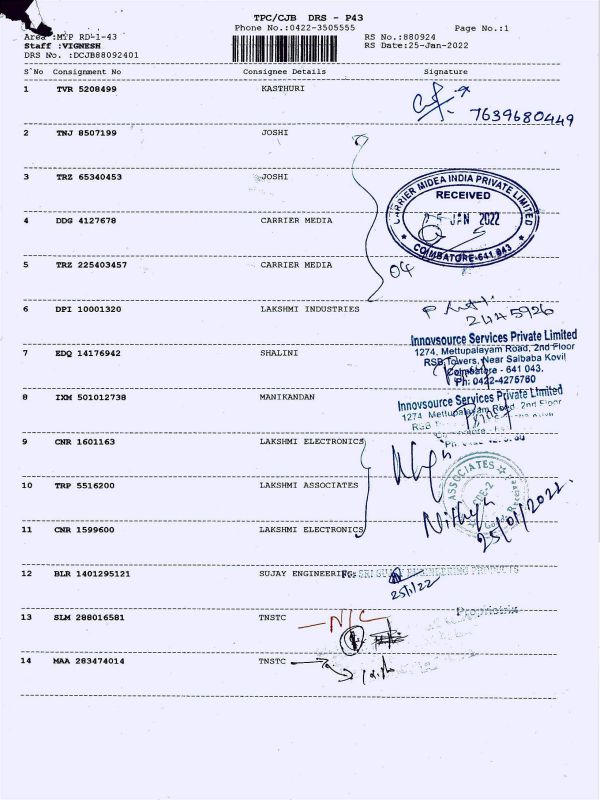 TPC/CJB DRS - P43
Phone No.:0422-3505555
Page No.:1
Area :MTP RD-1-43
RS No.:880924
Staff :VIGNESH
RS Date:25-Jan-2022
DRS No. :DCJB88092401
S'No Consignment No Consignee Details Signature
1 TVR 5208499 KASTHURI
7639680449
2 TNJ 8507199 JOSHI
3 TRZ 65340453 JOSHI
CARRIER MIDEA INDIA PRIVATE LIMITED
RECEIVED
JAN 2022
COIMBATORE-641 043
4 DDG 4127678 CARRIER MEDIA
5 TRZ 225403457 CARRIER MEDIA
04
6 DPI 10001320 LAKSHMI INDUSTRIES
2445926
Innovsource Services Private Limited
1274, Mettupalayam Road, 2nd Floor
RSB Towers, Near Saibaba Kovil
Coimbatore - 641 043.
Ph: 0422-4275760
7 EDQ 14176942 SHALINI
8 IXM 501012738 MANIKANDAN
Innovsource Services Private Limited
1274 Mettupalayam Road 2nd Floor
9 CNR 1601163 LAKSHMI ELECTRONICS
10 TRP 5516200 LAKSHMI ASSOCIATES
ASSOCIATES
CBE-2
Nithya
25/01/2022
11 CNR 1599600 LAKSHMI ELECTRONICS
12 BLR 1401295121 SUJAY ENGINEERING
25/1/22
Proprietrix
13 SLM 288016581 TNSTC
N/C
14 MAA 283474014 TNSTC